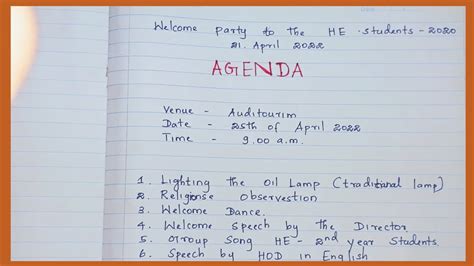 Welcome party to the HE students - 2020
21. April 2022
AGENDA
Venue - Auditourim
Date - 25th of April 2022
Time - 9.00 a.m.
1. Lighting the Oil Lamp (traditional lamp)
2. Religionse Observestion
3. Welcome Dance.
4. Welcome speech by the Director
5. Group Song HE - 2nd year Students.
6. Speech by HOD in English